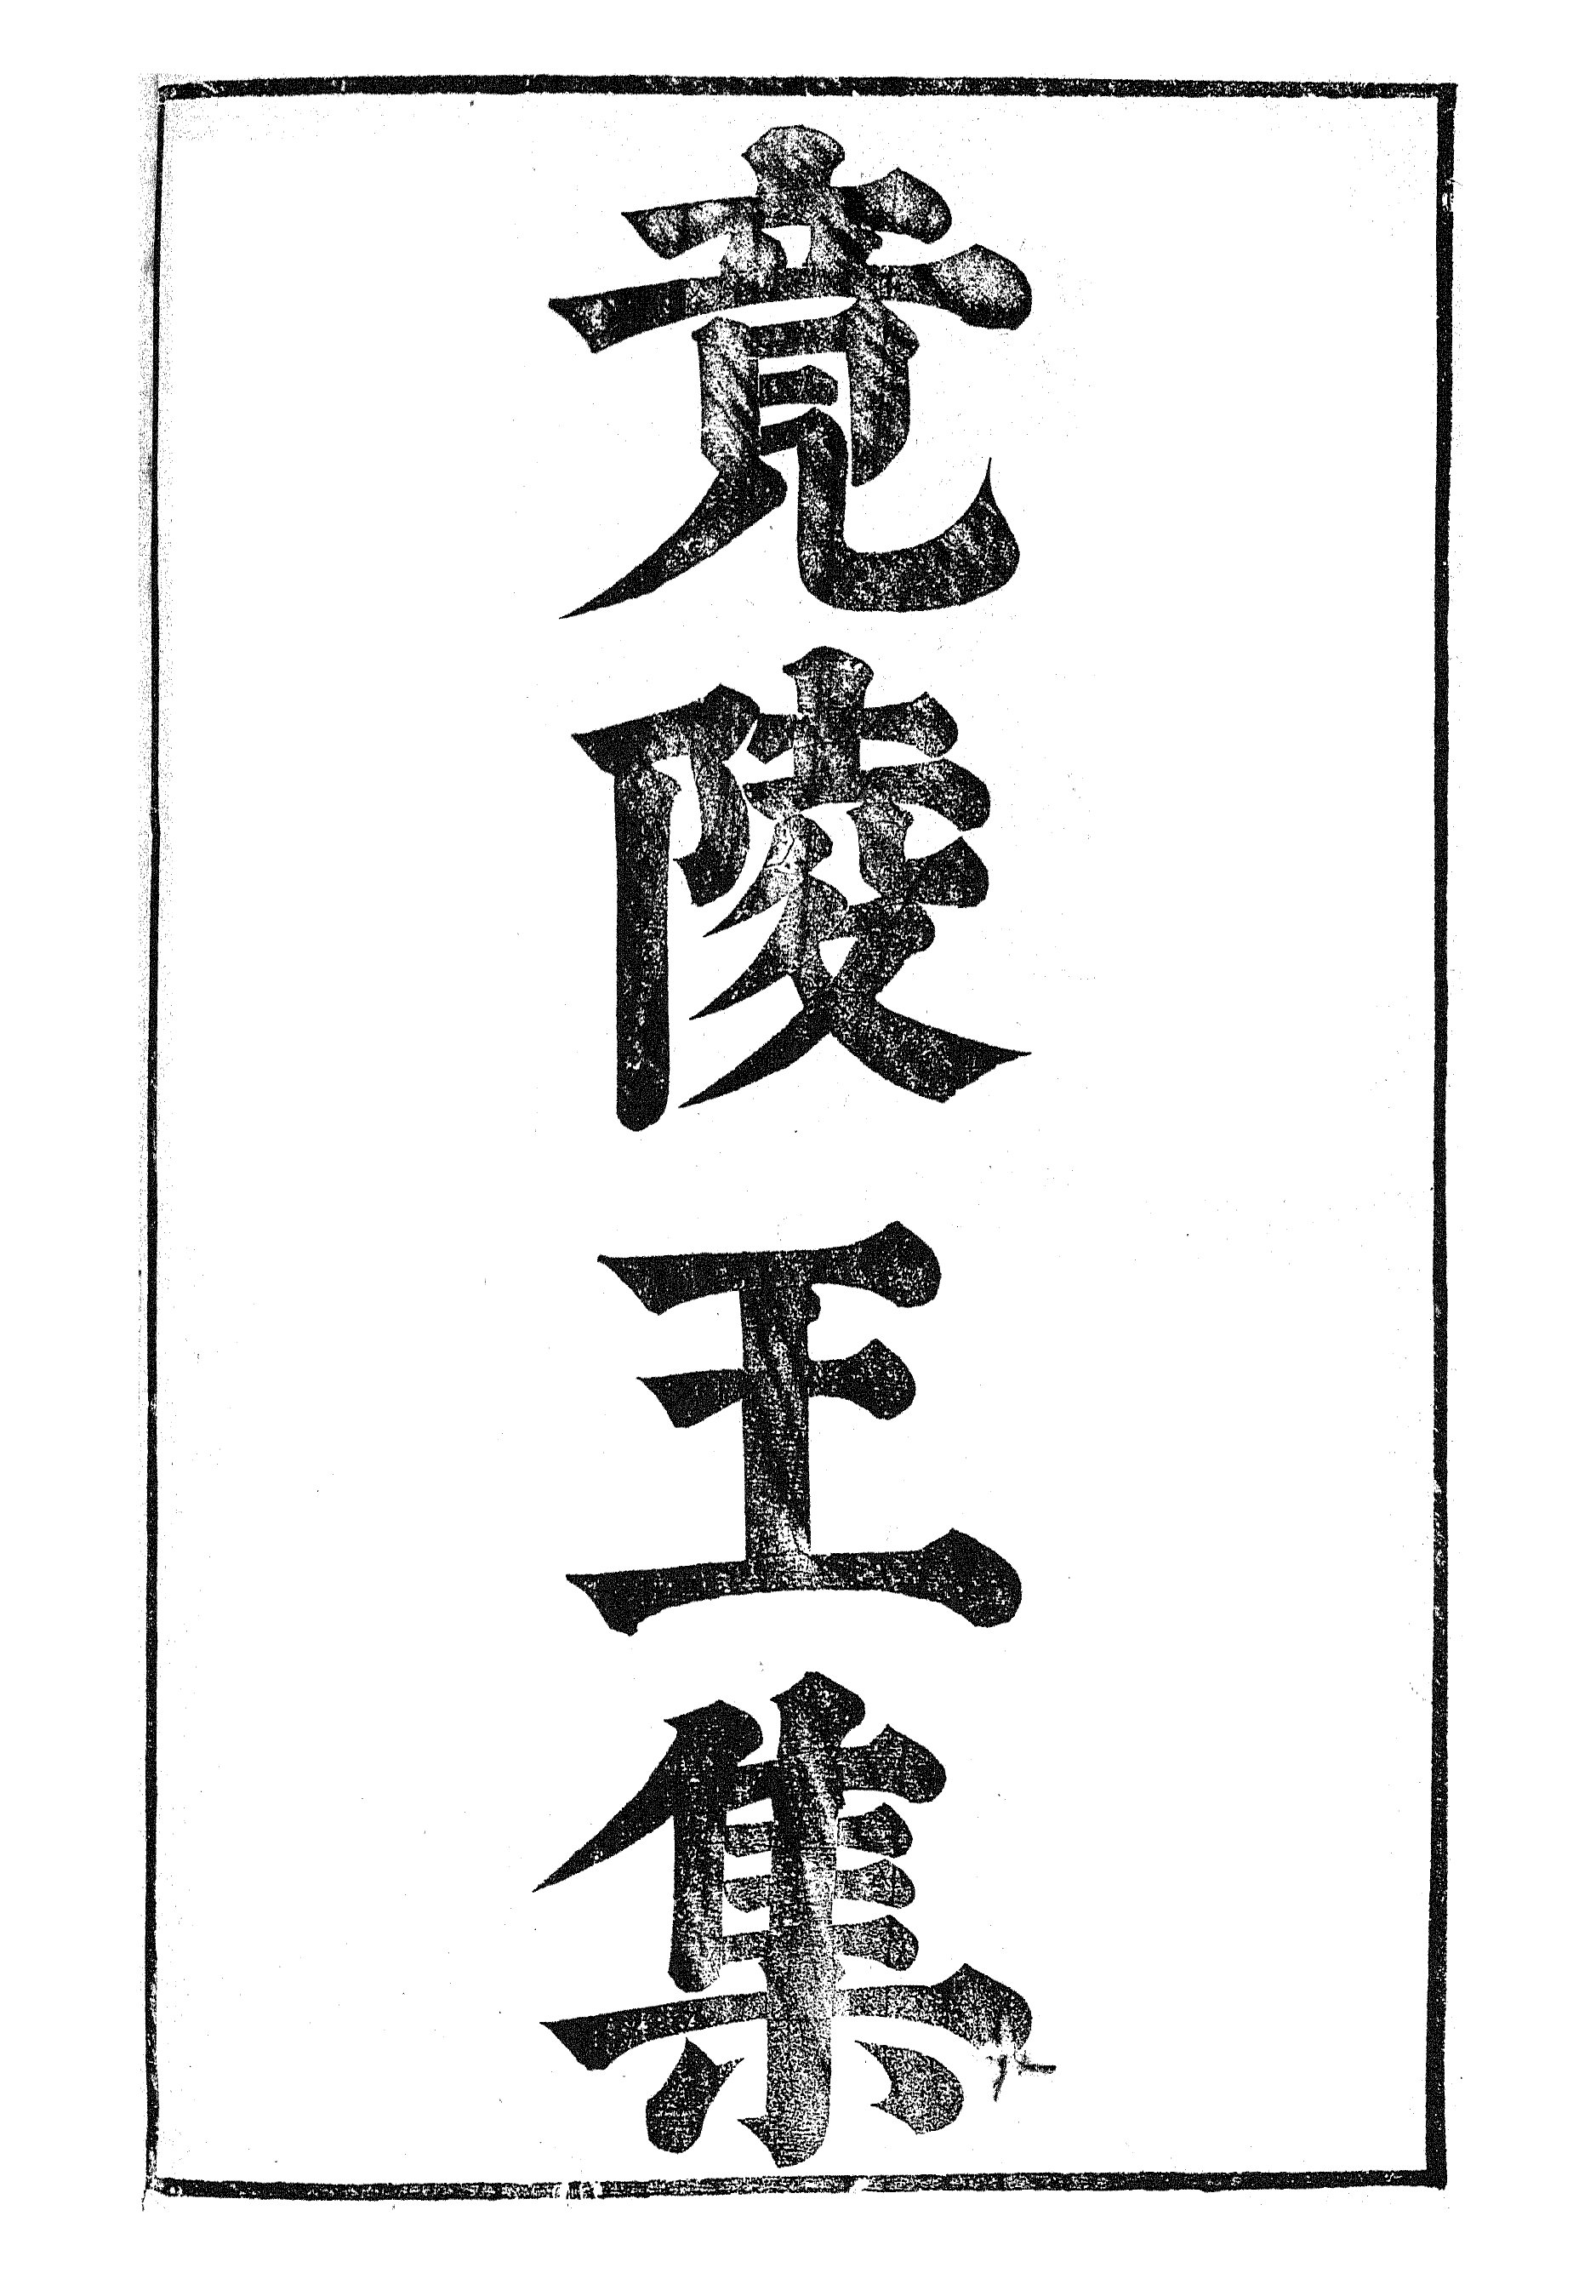 竟陵王集